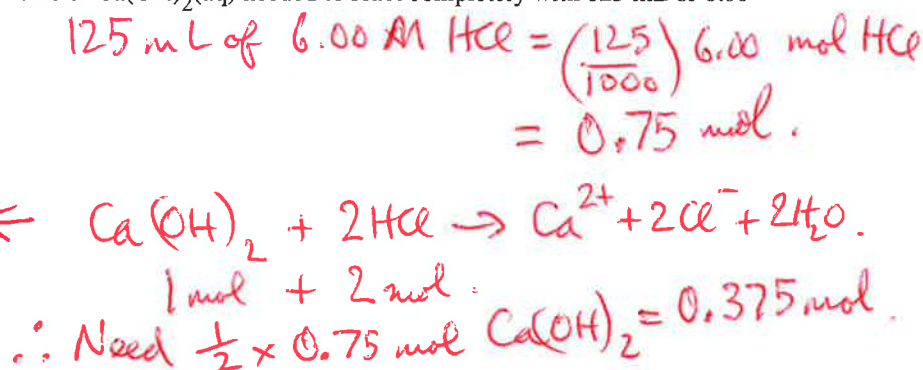 125 mL of 6.00 M HCl = (125/1000) 6.00 mol HCl
= 0.75 mol.
Ca(OH)₂ + 2HCl → Ca²⁺ + 2Cl⁻ + 2H₂O.
1 mol + 2 mol.
∴ Need 1/2 × 0.75 mol Ca(OH)₂ = 0.375 mol.